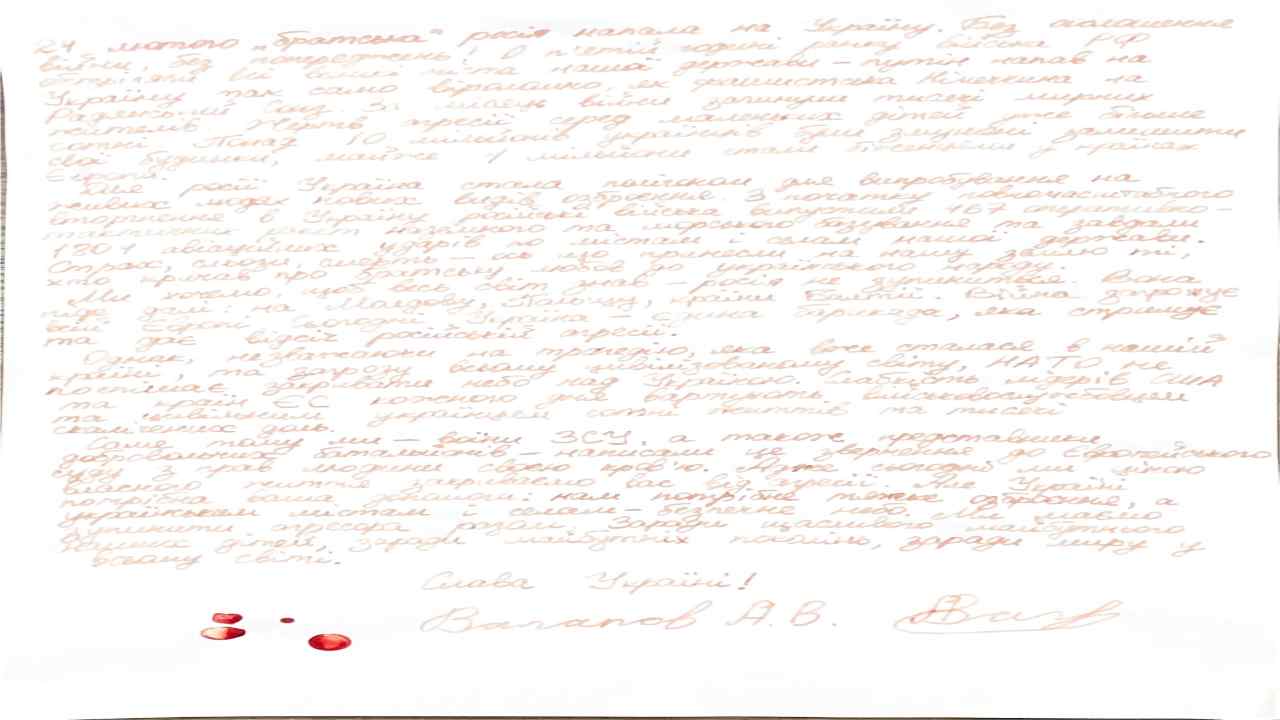 24 лютого "братська" росія напала на Україну. Без оголошення
війни, без попереджень! О п'ятій годині ранку війська РФ
обстріляли всі великі міста нашої держави – путін напав на
Україну так само віроломно, як фашистська Німеччина на
Радянський Союз. За місяць війни загинули тисячі мирних
жителів. Жертв агресії серед маленьких дітей уже більше
сотні. Понад 10 мільйонів українців були змушені залишити
свої будинки, майже 4 мільйони стали біженцями у країнах
Європи.
Для росії Україна стала полігоном для випробування на
живих людях нових видів озброєння. З початку повномасштабного
вторгнення в Україну російські війська випустили 467 оперативно-
тактичних ракет наземного та морського базування та завдали
1804 авіаційних ударів по містам і селам нашої держави.
Страх, сльози, смерть – ось що принесли на нашу землю ті,
хто кричав про братську любов до українського народу.
Ми хочемо, щоб весь світ знав – росія не зупиниться. Вона
піде далі: на Молдову, Польщу, країни Балтії. Війна загрожує
всій Європі. Сьогодні Україна – єдина барикада, яка стримує
та дає відсіч російській агресії.
Однак, незважаючи на трагедію, яка вже сталася в нашій
країні, та загрозу всьому цивілізованому світу, НАТО не
поспішає закривати небо над Україною. Слабкість лідерів США
та країн ЄС кожного дня вартують військовослужбовцям
та цивільним українцям сотні життів та тисячі
скалічених доль.
Саме тому ми – воїни ЗСУ, а також представники
добровольчих батальйонів – написали це звернення до Європейського
суду з прав людини своєю кров'ю. Адже сьогодні ми ціною
власного життя закриваємо вас від агресії. Але Україні
потрібна ваша допомога: нам потрібне тяжке озброєння, а
українським містам і селам – безпечне небо. Ми маємо
зупинити агресора разом. Заради щасливого майбутнього
наших дітей, заради майбутніх поколінь, заради миру у
всьому світі.
Слава Україні!
А.В.